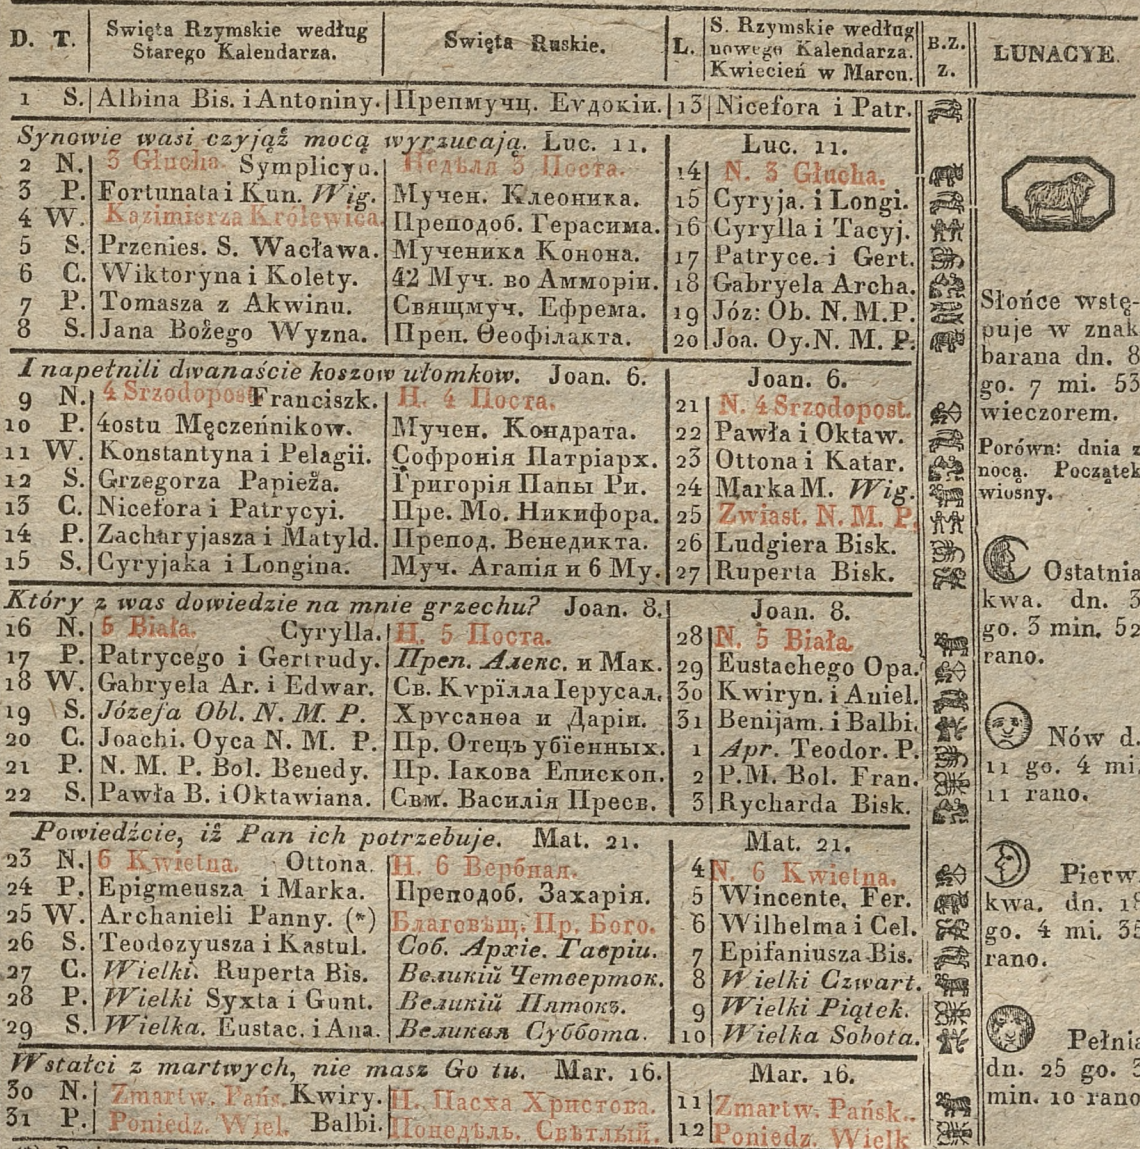 D. T. Swięta Rzymskie według Starego Kalendarza. Swięta Ruskie. L. S. Rzymskie według nowego Kalendarza. Kwiecień w Marcu. B.Z. z. LUNACYE.
1 S. Albina Bis. i Antoniny. Препмучц. Еѵдокіи. 13 Nicefora i Patr.
Synowie wasi czyjąż mocą wyrzucają. Luc. 11. Luc. 11.
2 N. 3 Głucha. Symplicyu. Недѣля 3 Поста. 14 N. 3 Głucha.
3 P. Fortunata i Kun. Wig. Мучен. Клеоника. 15 Cyryja. i Longi.
4 W. Kazimierza Królewica. Преподоб. Герасима. 16 Cyrylla i Tacyj.
5 S. Przenies. S. Wacława. Мученика Конона. 17 Patryce. i Gert.
6 C. Wiktoryna i Kolety. 42 Муч. во Амморіи. 18 Gabryela Archa.
7 P. Tomasza z Akwinu. Свящмуч. Ефрема. 19 Józ: Ob. N. M. P.
8 S. Jana Bożego Wyzna. Преп. Ѳеофілакта. 20 Joa. Oy. N. M. P.
Słońce wstę-
puje w znak
barana dn. 8
go. 7 mi. 53
wieczorem.
Porówn: dnia z
nocą. Początek
wiosny.
I napełnili dwanaście koszow ułomkow. Joan. 6. Joan. 6.
9 N. 4 Srzodopost Franciszk. Н. 4 Поста. 21 N. 4 Srzodopost.
10 P. 4ostu Męczennikow. Мучен. Кондрата. 22 Pawła i Oktaw.
11 W. Konstantyna i Pelagii. Софронія Патріарх. 23 Ottona i Katar.
12 S. Grzegorza Papieża. Григорія Папы Ри. 24 Marka M. Wig.
13 C. Nicefora i Patrycyi. Пре. Мо. Никифора. 25 Zwiast. N. M. P.
14 P. Zacharyjasza i Matyld. Препод. Венедикта. 26 Ludgiera Bisk.
15 S. Cyryjaka i Longina. Муч. Агапія и 6 Му. 27 Ruperta Bisk.
Ostatnia
kwa. dn. 3
go. 3 min. 52
rano.
Który z was dowiedzie na mnie grzechu? Joan. 8. Joan. 8.
16 N. 5 Biała. Cyrylla. Н. 5 Поста. 28 N. 5 Biała.
17 P. Patrycego i Gertrudy. Преп. Алекс. и Мак. 29 Eustachego Opa.
18 W. Gabryela Ar. i Edwar. Св. Кѵрїлла Іерусал. 30 Kwiryn. i Aniel.
19 S. Józefa Obl. N. M. P. Хрѵсанѳа и Даріи. 31 Benijam. i Balbi.
20 C. Joachi. Oyca N. M. P. Пр. Отецъ убїенных. 1 Apr. Teodor. P.
21 P. N. M. P. Bol. Benedy. Пр. Іакова Епископ. 2 P. M. Bol. Fran.
22 S. Pawła B. i Oktawiana. Свм. Василія Пресв. 3 Rycharda Bisk.
Nów d.
11 go. 4 mi.
11 rano.
Powiedźcie, iż Pan ich potrzebuje. Mat. 21. Mat. 21.
23 N. 6 Kwietna. Ottona. Н. 6 Вербная. 4 N. 6 Kwietna.
24 P. Epigmeusza i Marka. Преподоб. Захарія. 5 Wincente. Fer.
25 W. Archanieli Panny. (*) Благовѣщ. Пр. Бого. 6 Wilhelma i Cel.
26 S. Teodozyusza i Kastul. Соб. Архіе. Гавріи. 7 Epifaniusza Bis.
27 C. Wielki. Ruperta Bis. Великій Четверток. 8 Wielki Czwart.
28 P. Wielki Syxta i Gunt. Великій Пятокъ. 9 Wielki Piątek.
29 S. Wielka. Eustac. i Ana. Великая Суббота. 10 Wielka Sobota.
Pierw.
kwa. dn. 18
go. 4 mi. 35
rano.
Wstałci z martwych, nie masz Go tu. Mar. 16. Mar. 16.
30 N. Zmartw. Pańs. Kwiry. Н. Пасха Христова. 11 Zmartw. Pańsk.
31 P. Poniedz. Wiel. Balbi. Понедѣль. Свѣтлый. 12 Poniedz. Wielk
Pełnia
dn. 25 go. 3
min. 10 rano